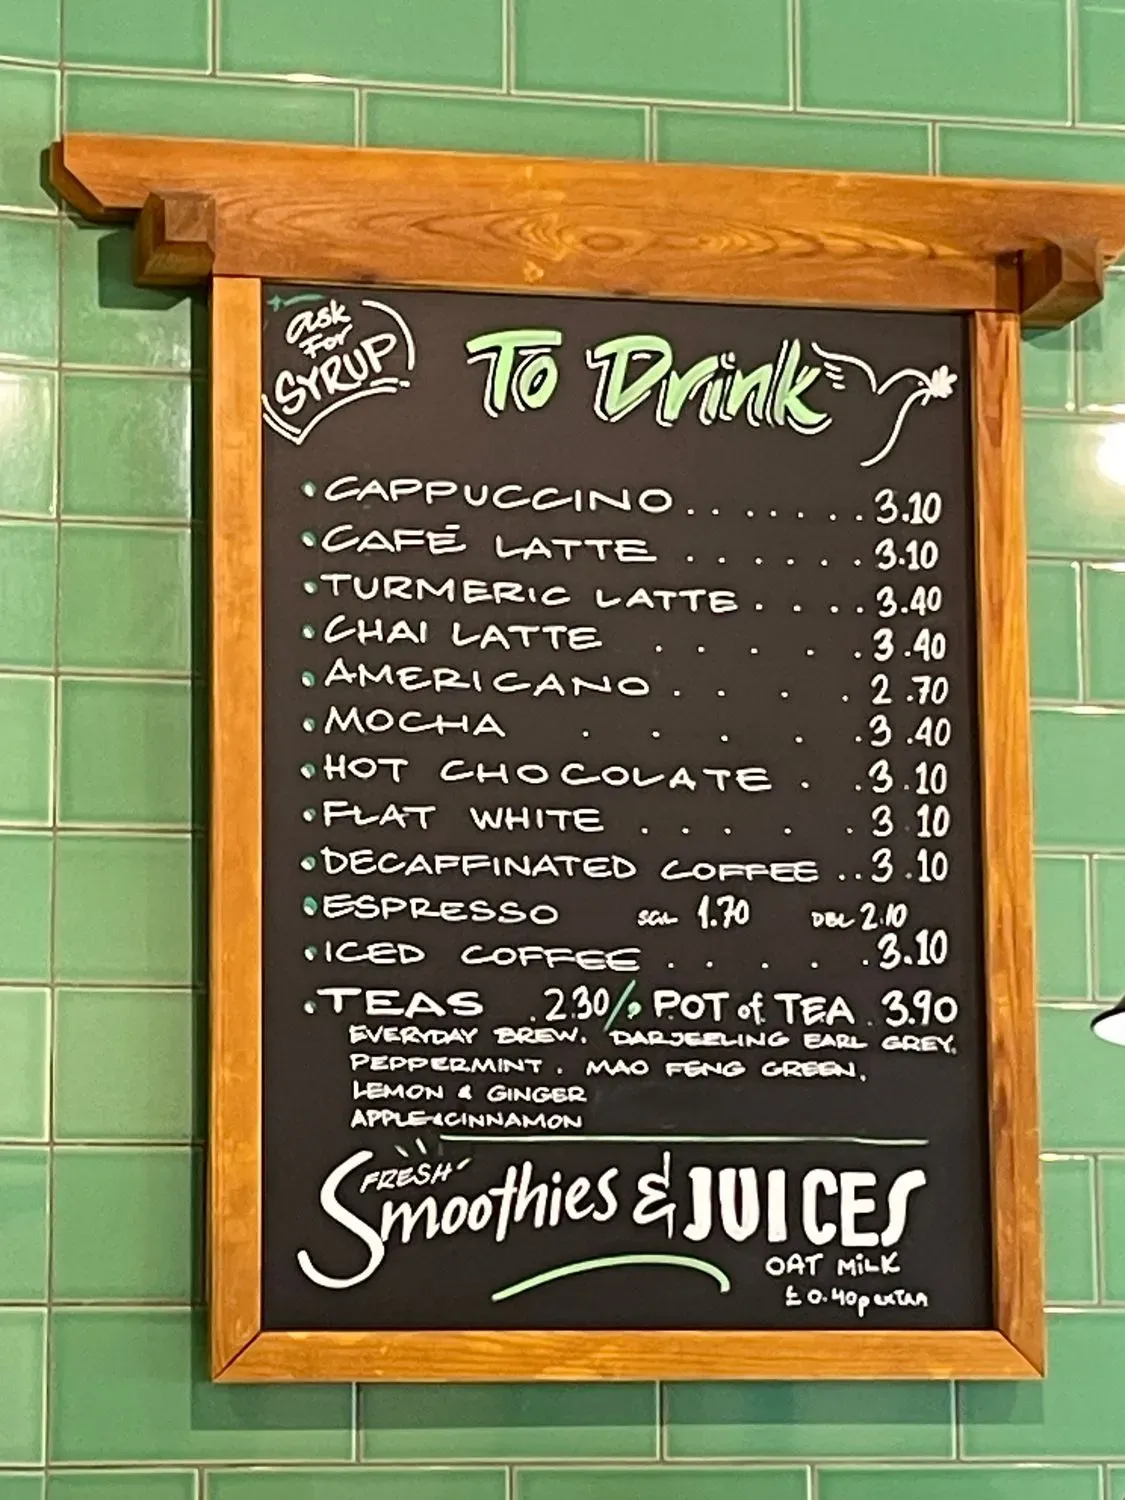 ask
For
SYRUP
To Drink
• CAPPUCCINO . . . . . . . 3.10
• CAFÉ LATTE . . . . . . 3.10
• TURMERIC LATTE . . . . 3.40
• CHAI LATTE . . . . . 3.40
• AMERICANO . . . . 2.70
• MOCHA . . . . . 3.40
• HOT CHOCOLATE . . 3.10
• FLAT WHITE . . . . . 3 10
• DECAFFINATED COFFEE .. 3.10
• ESPRESSO SGL 1.70 DBL 2.10
• ICED COFFEE . . . . . 3.10
• TEAS . 2.30/• POT of TEA . 3.90
EVERYDAY BREW. DARJEELING EARL GREY.
PEPPERMINT . MAO FENG GREEN.
LEMON & GINGER
APPLE & CINNAMON
FRESH
Smoothies & JUICES
OAT MiLK
£ 0.40p extra